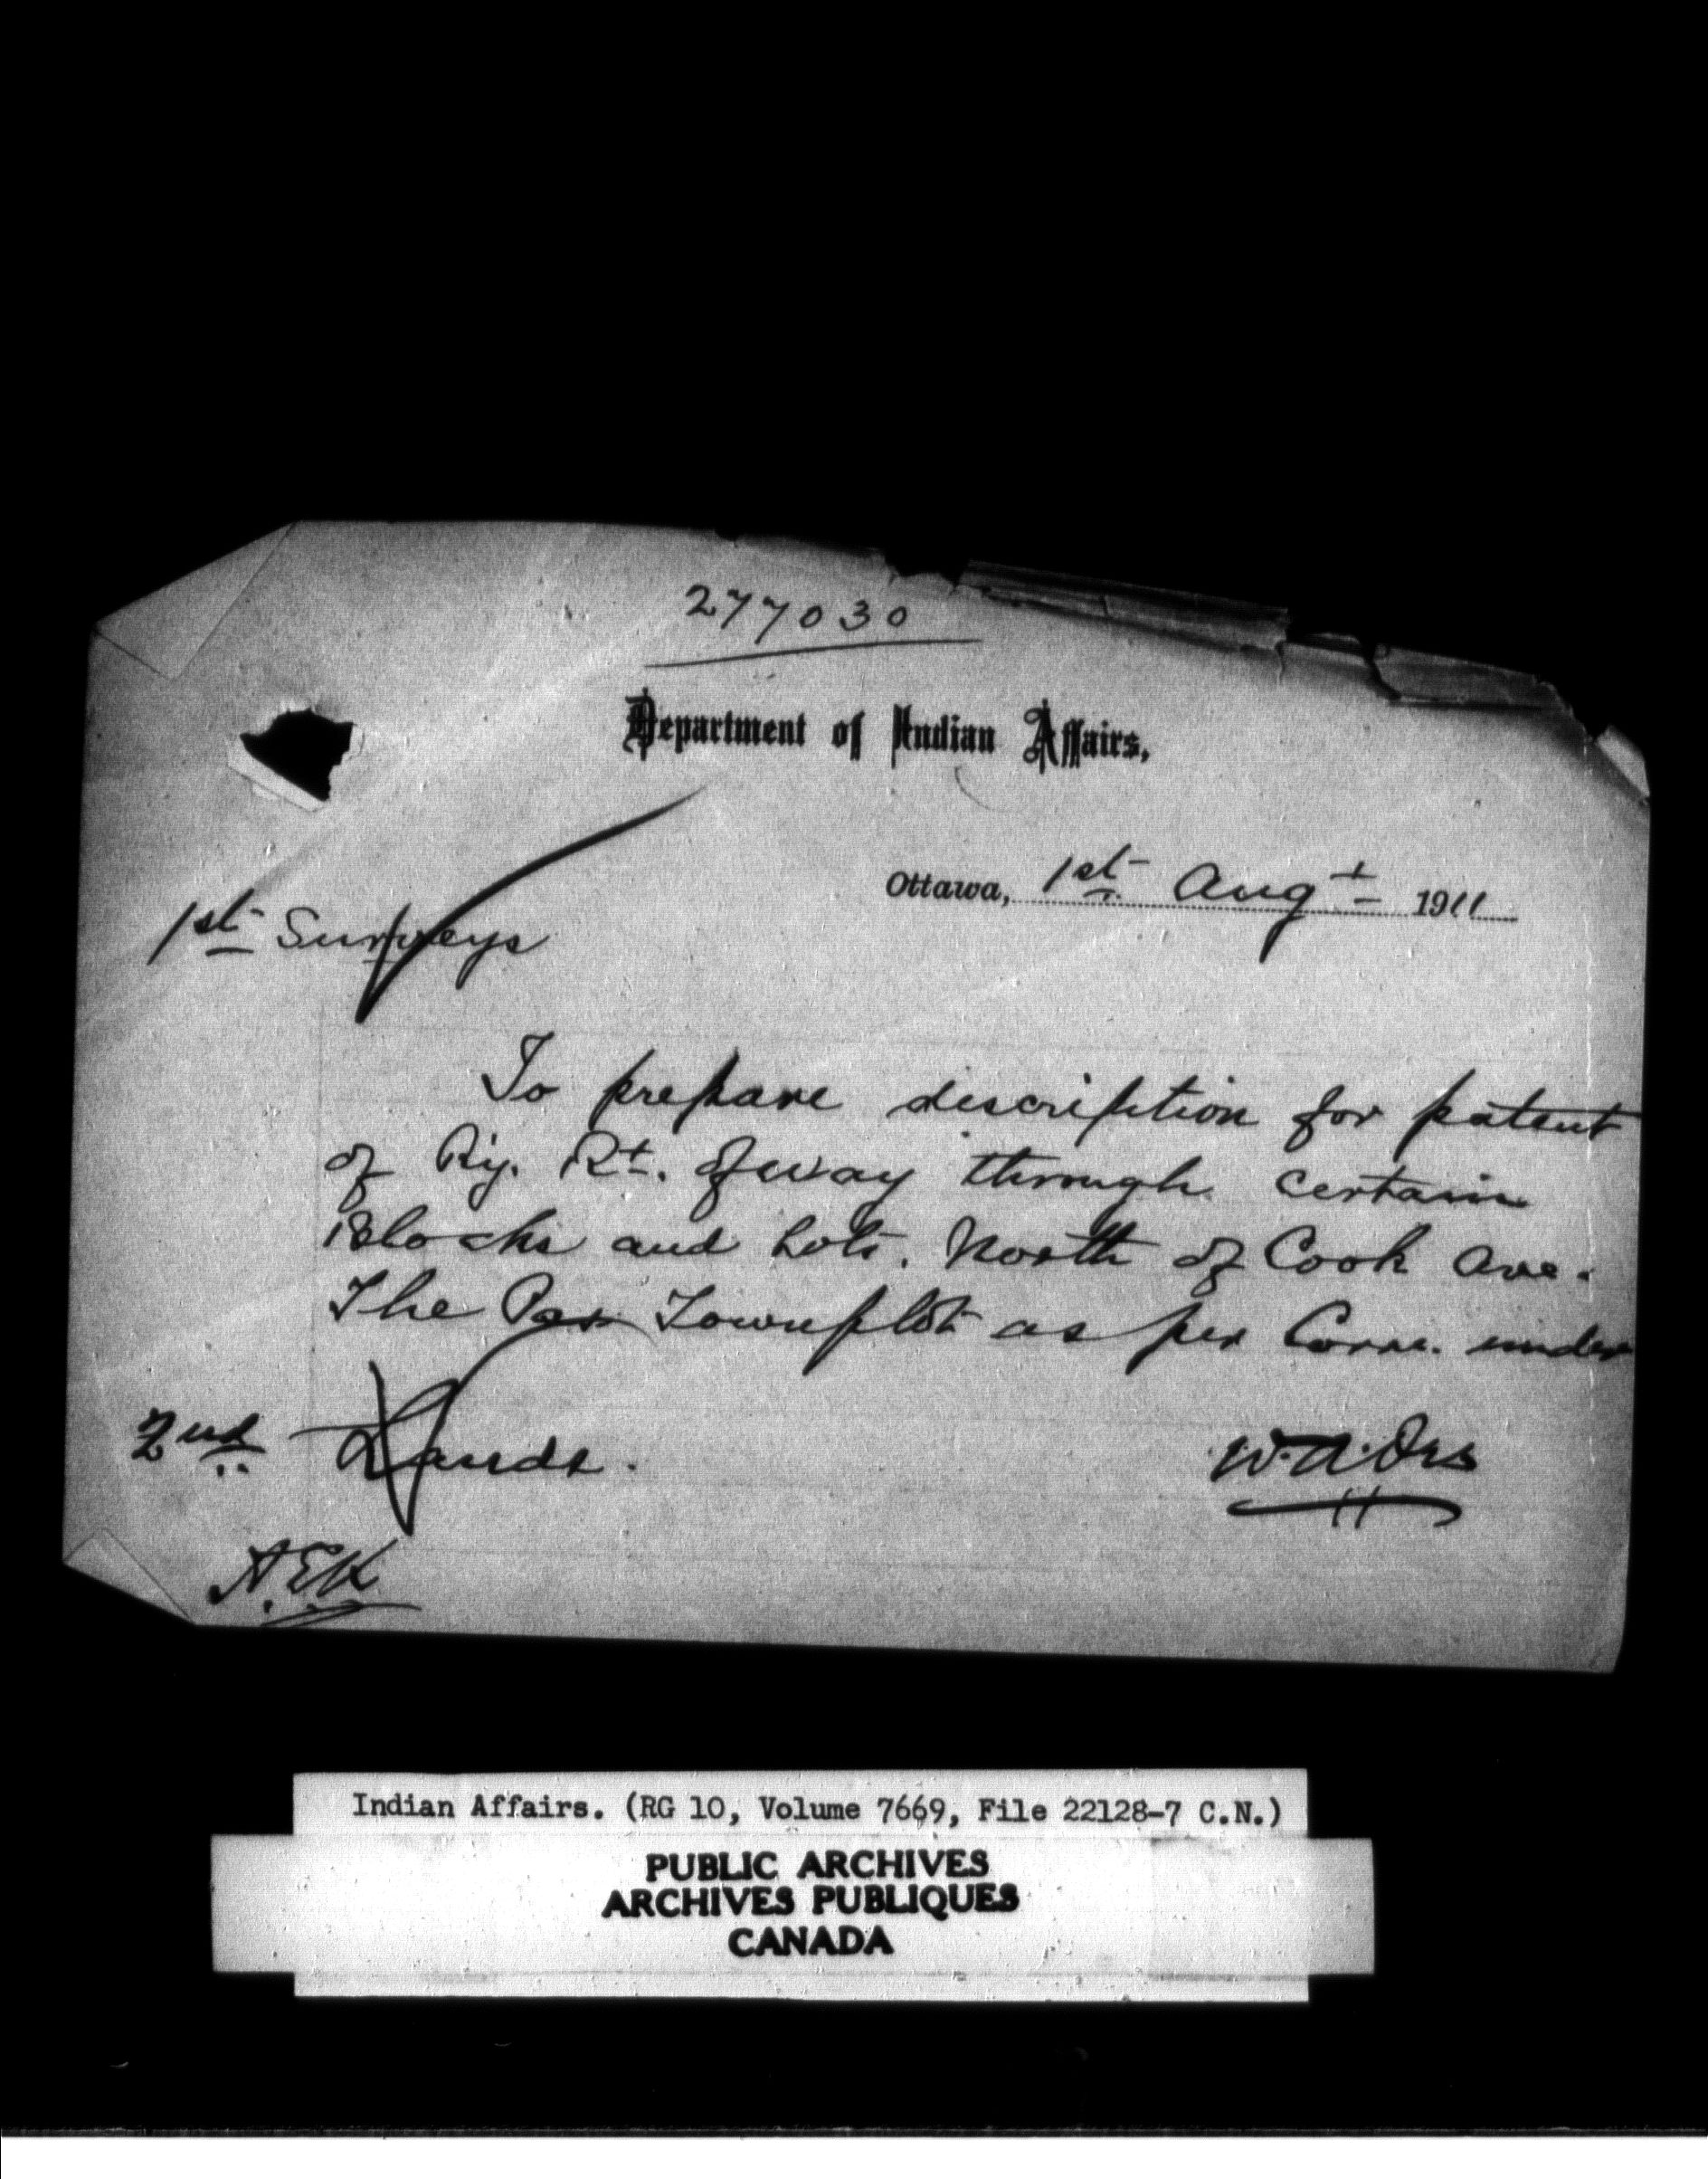 277030
Department of Indian Affairs.
Ottawa, 1st Augt 1911
1st Surveys
To prepare description for patent
of Ry. Rt. of way through certain
Blocks and Lots. North of Cook Ave.
The Pas Townplot as per Corre. under
2nd Lands.
W.A. Orr
A.E.K
Indian Affairs. (RG 10, Volume 7669, File 22128-7 C.N.)
PUBLIC ARCHIVES
ARCHIVES PUBLIQUES
CANADA